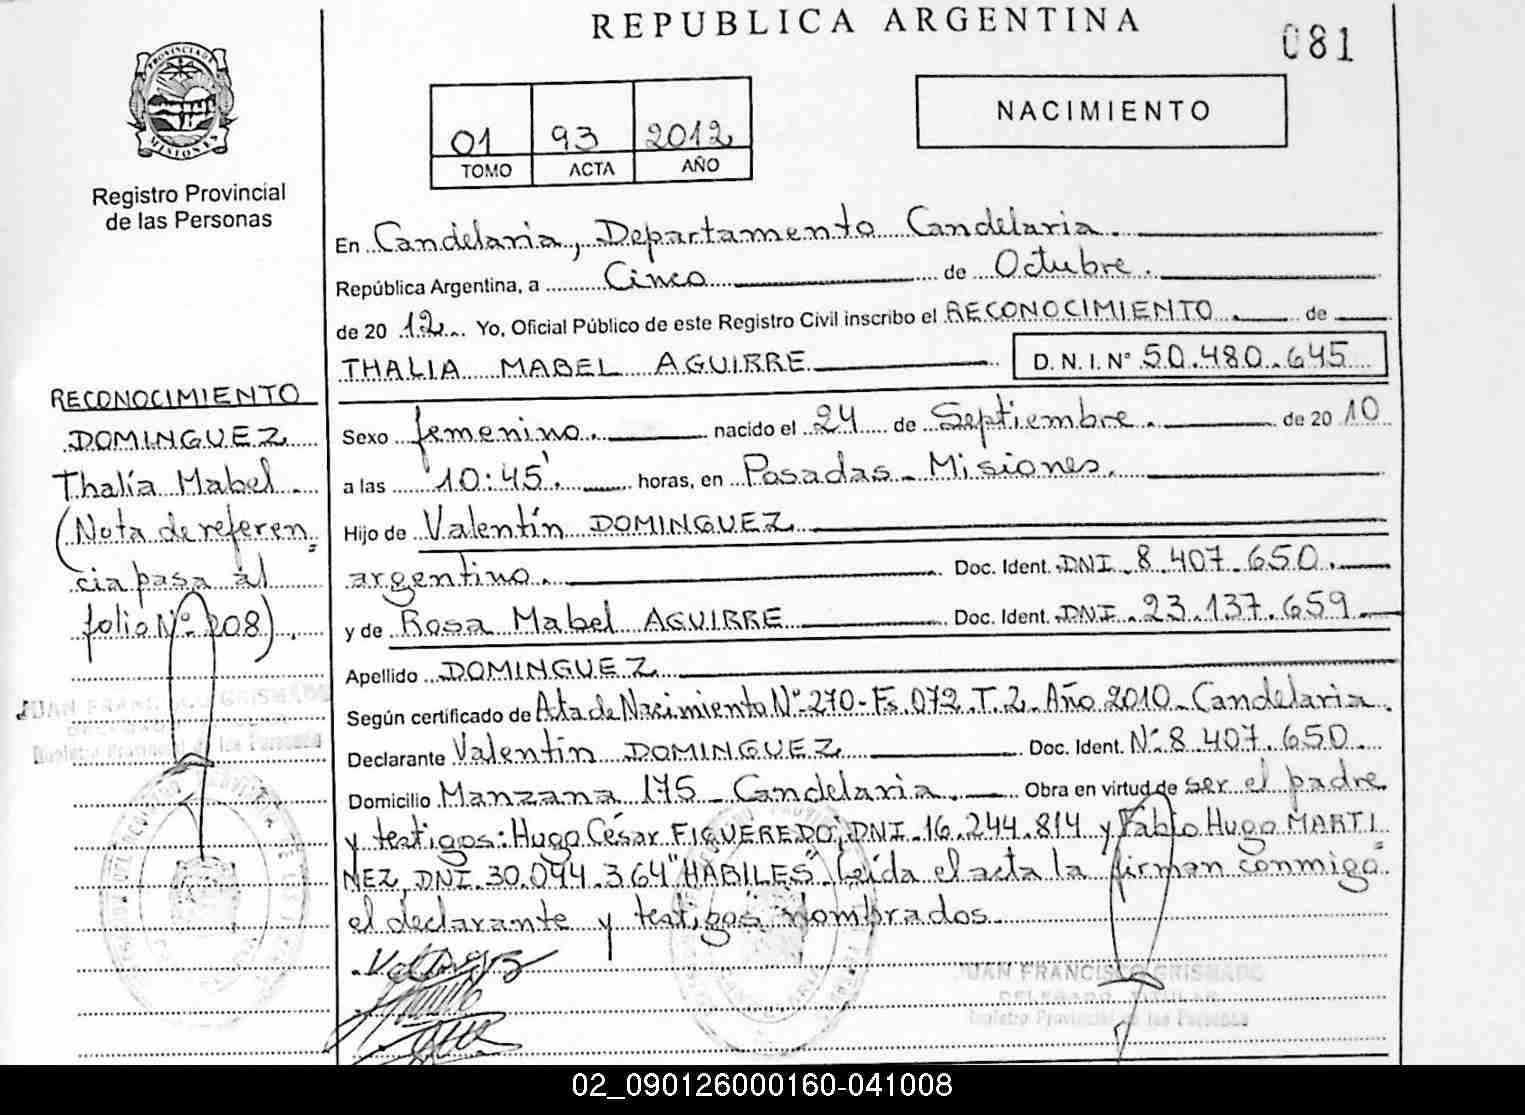 REPUBLICA ARGENTINA
081
PROVINCIA DE
MISIONES
Registro Provincial
de las Personas
01 93 2012
TOMO ACTA AÑO
NACIMIENTO
En Candelaria, Departamento Candelaria.
República Argentina, a Cinco de Octubre.
de 2012. Yo, Oficial Público de este Registro Civil inscribo el RECONOCIMIENTO de
THALIA MABEL AGUIRRE D. N. I. N° 50.480.645
RECONOCIMIENTO
DOMINGUEZ
Thalía Mabel.
(Nota de referen=
cia pasa al
folio Nº 208).
Sexo femenino. nacido el 24 de Septiembre. de 2010
a las '10:45'. horas, en Posadas - Misiones.
Hijo de Valentín DOMINGUEZ
argentino. Doc. Ident. DNI. 8.407.650.
y de Rosa Mabel AGUIRRE Doc. Ident. DNI. 23.137.659
Apellido DOMINGUEZ
Según certificado de Acta de Nacimiento Nº 270 - Fs. 072. T. 2. Año 2010 - Candelaria.
Declarante Valentín DOMINGUEZ Doc. Ident. Nº 8.407.650.
Domicilio Manzana 175 - Candelaria. Obra en virtud de ser el padre
y testigos: Hugo César FIGUEREDO, DNI. 16.244.814 y Fabio Hugo MARTI
NEZ, DNI. 30.094.364 "HABILES". Leída el acta la firman conmigo
el declarante y testigos nombrados.
JUAN FRANCISCO GRISMADO
Registro Provincial de las Personas
JUAN FRANCISCO GRISMADO
DELEGADO TITULAR
Registro Provincial de las Personas
02_090126000160-041008